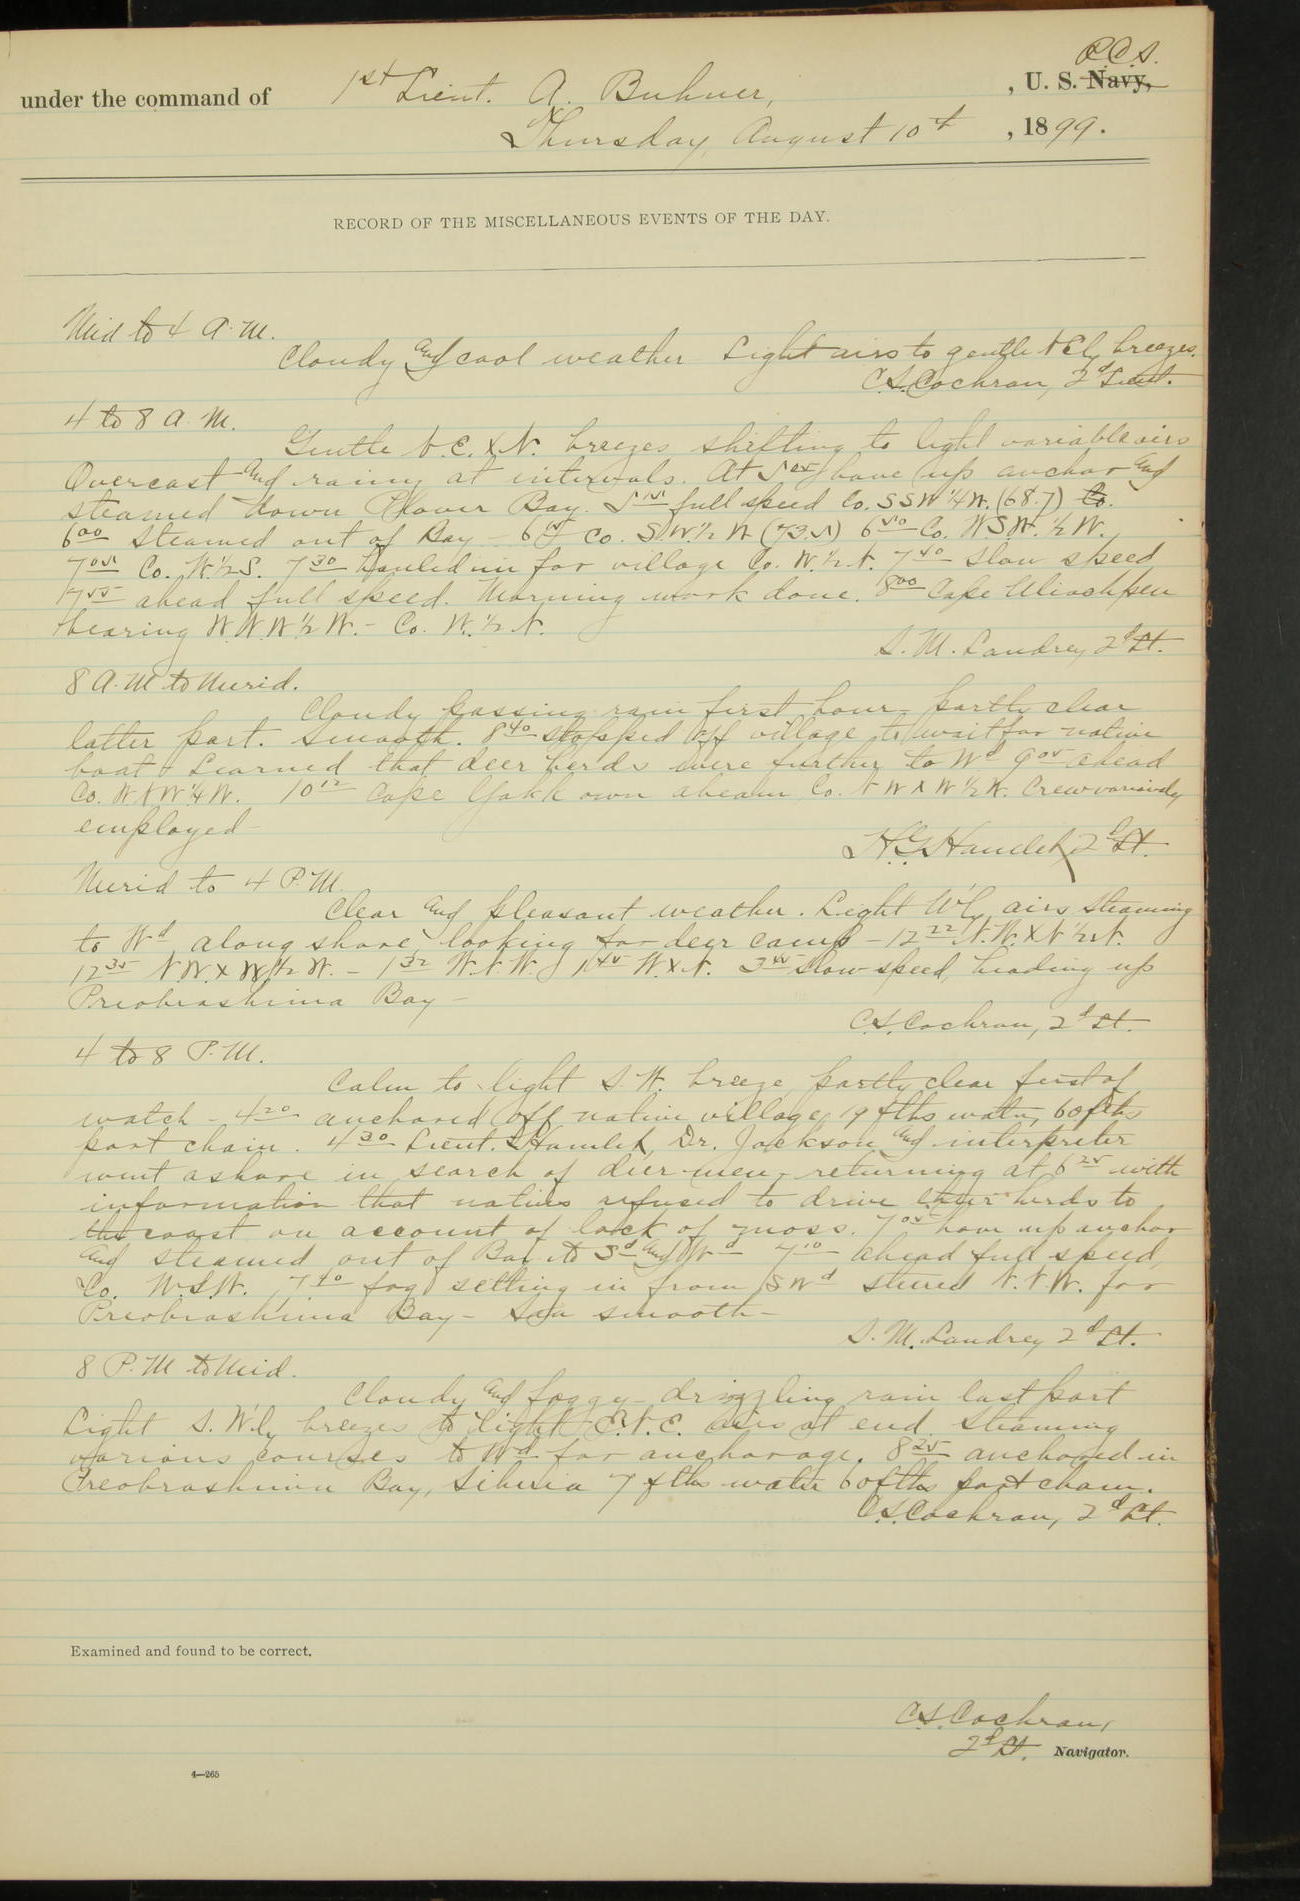 R.C.S.
under the command of 1st Lieut. A. Buhner, , U. S. Navy,
Thursday, August 10th , 1899.
RECORD OF THE MISCELLANEOUS EVENTS OF THE DAY.
Mid to 4 A.M.
Cloudy and cool weather Light airs to gentle N'E'ly breezes.
C.S. Cochran, 2d Lieut.
4 to 8 A.M.
Gentle N.E. X N. breezes shifting to light variable airs
Overcast and rainy at intervals. At hove up anchor and
steamed down Plover Bay. full speed Co. SSW 1/4 W. (68.7) Co.
6 00 steamed out of Bay - Co. S.W. 1/2 W 6 50 Co. WSW. 1/2 W.
7 05 Co. W. 1/2 S. 7 30 hauled in for village Co. W. 1/2 N. 7 40 slow speed
7 55 ahead full speed. Morning work done. 8 00 Cape Uliachpen
bearing W.N.W 1/2 W. - Co. W. 1/2 N.
S. M. Landrey 2d Lt.
8 A.M to Merid.
Cloudy passing rain first hour - partly clear
latter part. Smooth. 8 40 stopped off village to wait for native
boat Learned that deer herds were further to Wd 9 05 ahead
Co. W X W 1/4 W. 10 12 Cape Yakk own abeam Co. N W X W 1/2 W. Crew variously
employed
H.G. Hamlet 2d Lt.
Merid to 4 P.M.
Clear and pleasant weather. Light W'ly airs Steaming
to Wd along shore, looking for deer camp - 12 22 N.W. X N 1/2 N.
12 35 N W. X W 1/2 W. - 1 32 W.N.W. 1 45 W X N. slow speed, heading up
Preobrashima Bay -
C.S. Cochran, 2d Lt.
4 to 8 P.M.
Calm to light S.W. breeze partly clear first of
watch - 4 20 anchored off native village, 19 fths water, 60 fths
port chain. 4 30 Lieut. Hamlet, Dr. Jackson and interpreter
went ashore in search of deer-men, returning at 6 25 with
information that natives refused to drive their herds to
the coast on account of lack of moss. 7 05 hove up anchor
and steamed out of Bay to Sd and Wd 7 10 ahead full speed,
Co. W.S.W. 7 40 fog setting in from SWd steered N.N.W. for
Preobrashima Bay - Sea smooth -
S. M. Landrey 2d Lt.
8 P.M to Mid.
Cloudy and foggy - drizzling rain last part
Light S.W'ly breezes to light E.N.E. airs at end. Steaming
various courses to Wd for anchorage. 8 25 anchored in
Preobrashima Bay, Siberia 7 fths water 60 fths port chain.
C.S. Cochran, 2d Lt.
Examined and found to be correct.
C.S. Cochran,
2d Lt. Navigator.
4—265